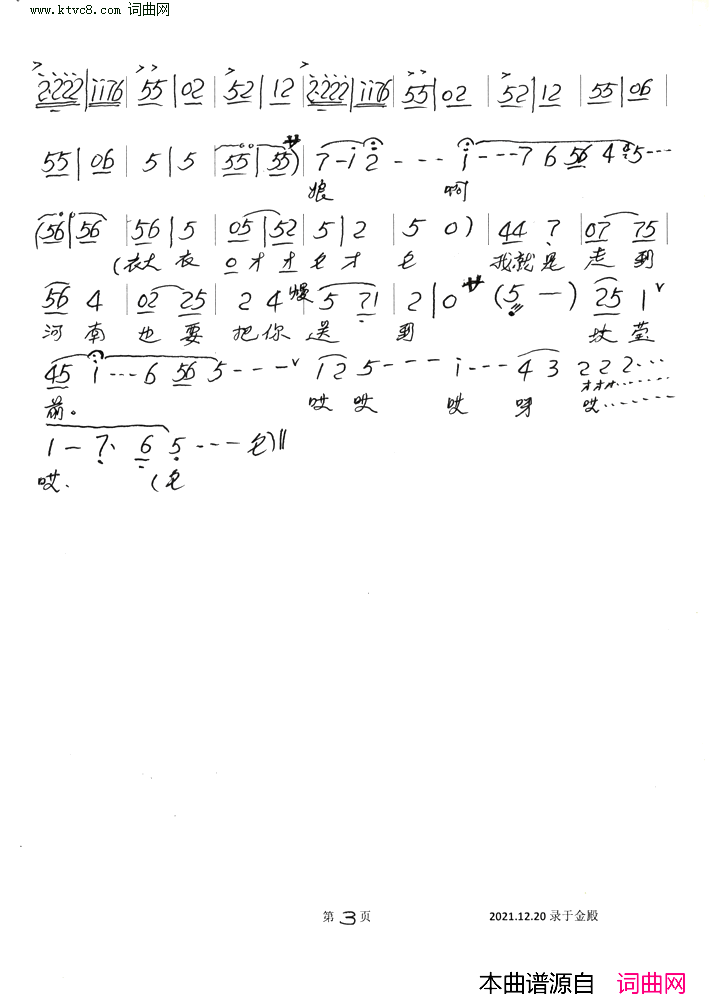 www.ktvc8.com 词曲网
2·222|1176|55|02|52|12|2·222|1176|55|02|52|12|55|06|
55|06|5|5|55|55) 7-i2---i---7 6 56 4 5---
娘 啊
(56|56|56|5|05|52|5|2|5 0)|44 7|07 75|
(衣大 衣 0才 才 乇 才 乇 我就是 走 到
56 4|02 25|2 4 慢|5 71|2|0 サ (5 —) 25 1 ∨
河南 也要 把你 送 到 坟茔
45 i---6 56 5---∨ 12 5--- i---4 3 2 2 2---
前。 哎 哎 哎 呀 哎……
1-7· 6 5---乇)‖
哎. (乇
第3页 2021.12.20 录于金殿
本曲谱源自 词曲网